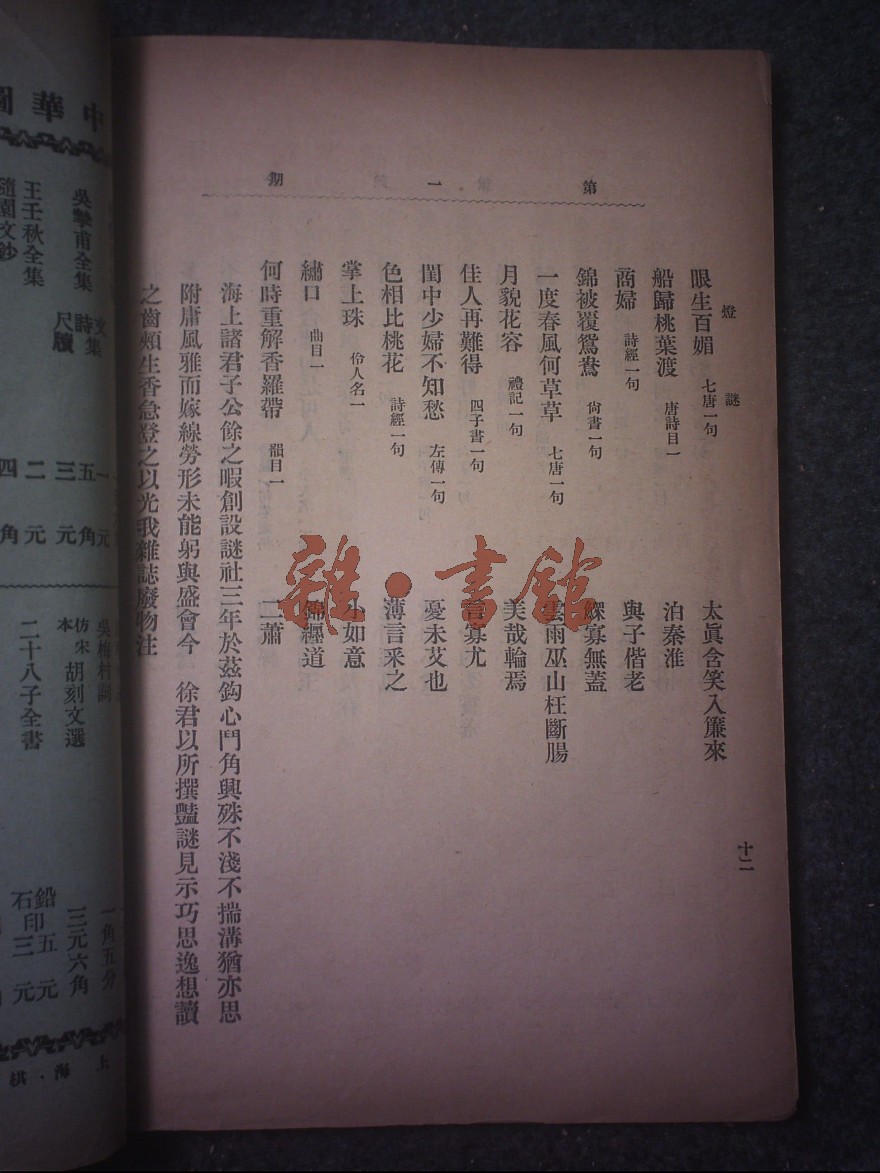 燈謎
十二
第一期
眼生百媚 七唐一句 太眞含笑入簾來
船歸桃葉渡 唐詩目一 泊秦淮
商婦 詩經一句 與子偕老
錦被覆鴛鴦 尙書一句 鰥寡無蓋
一度春風何草草 七唐一句 雲雨巫山枉斷腸
月貌花容 禮記一句 美哉輪焉
佳人再難得 四子書一句 言寡尤
閨中少婦不知愁 左傳一句 憂未艾也
色相比桃花 詩經一句 薄言采之
掌上珠 伶人名一 小如意
繡口 曲目一 錦纏道
何時重解香羅帶 韻目一 二蕭
海上諸君子公餘之暇創設謎社三年於茲鈎心鬥角興殊不淺不揣溝猶亦思
附庸風雅而嫁線勞形未能躬與盛會今 徐君以所撰豔謎見示巧思逸想讀
之齒頰生香急登之以光我雜誌廢物注
雜·書館
中華圖
吳摯甫全集 文集 詩集 尺牘
王壬秋全集
隨園文鈔
一元
五角
三元
二元
四角
吳梅村詞
仿宋本 胡刻文選
二十八子全書
一角五分
三元六角
鉛印五元
石印三元
上海·棋